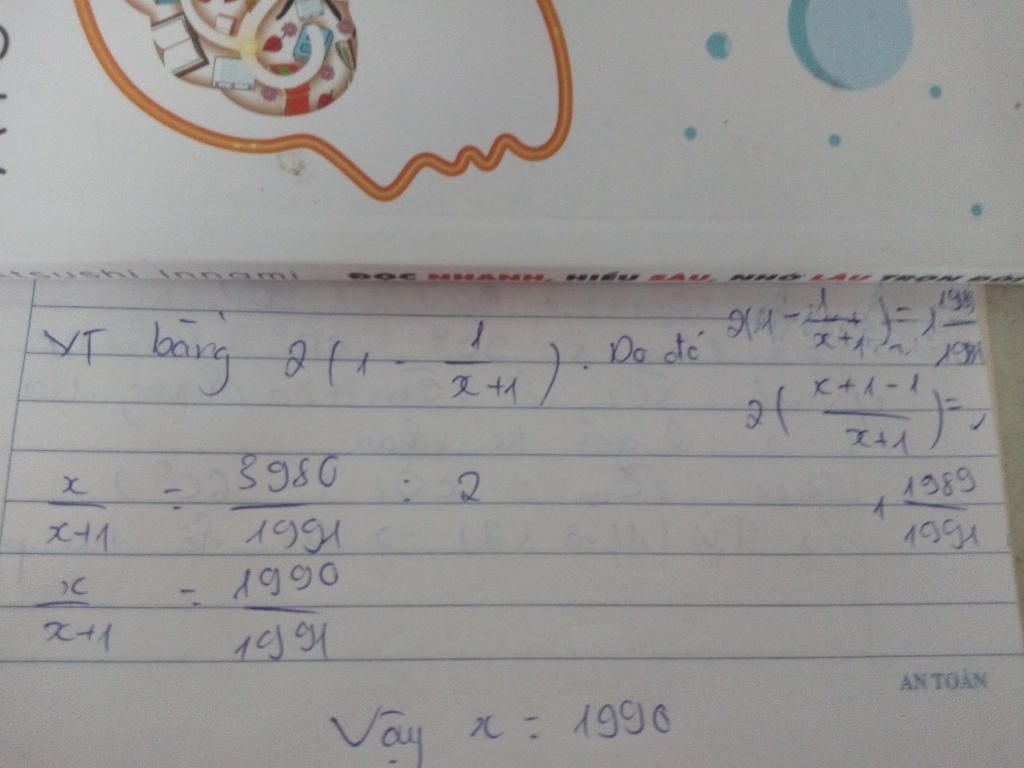 atsushi Innami ĐỌC NHANH, HIỂU SÂU, NHỚ LÂU TRỌN ĐỜI
VT bằng 2(1 - 1/(x+1)). Do đó 2(1 - 1/(x+1)) = 1 1989/1991
2((x+1-1)/(x+1)) = 1 1989/1991
x/(x+1) = 3980/1991 : 2
x/(x+1) = 1990/1991
AN TOÀN
Vậy x = 1990